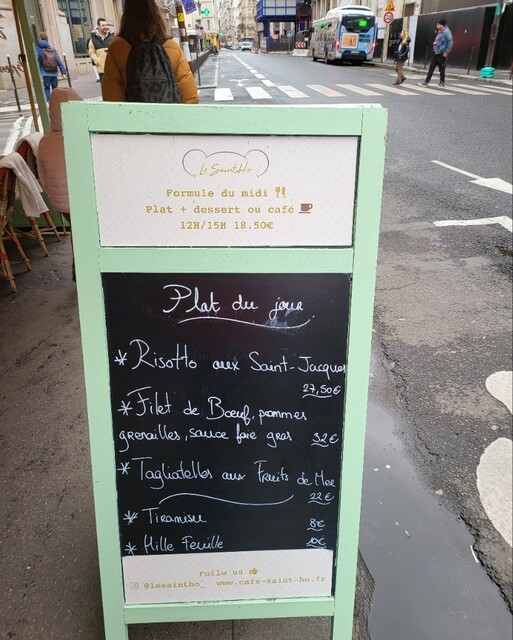 Le Saint Ho
Formule du midi
Plat + dessert ou café
12H/15H 18.50€
Plat du jour
* Risotto aux Saint-Jacques
27,50€
* Filet de Bœuf, pommes
grenailles, sauce foie gras 32€
* Tagliatelles aux Fruits de Mer
22€
* Tiramisu 8€
* Mille Feuille 10€
Follw us
@lesaintho_ www.cafe-saint-ho.fr